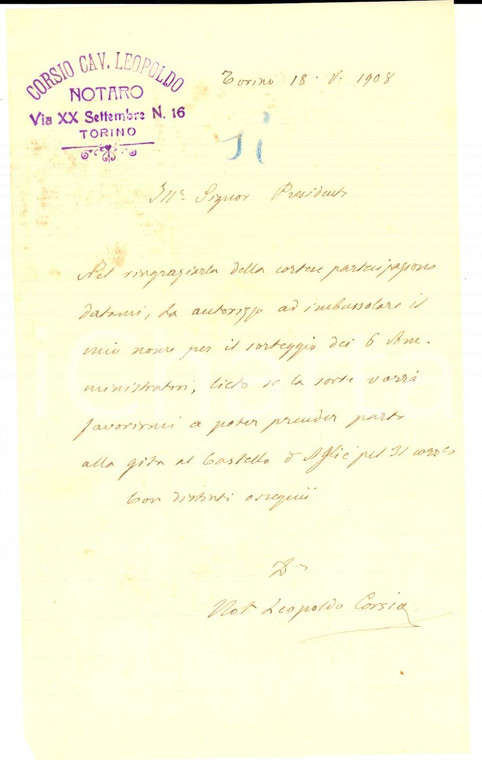 CORSIO CAV. LEOPOLDO
NOTARO
Via XX Settembre N. 16
TORINO
Torino 18. V. 1908
Sì
Ill. Signor Presidente
Nel ringraziarla della cortese partecipazione
datami, La autorizzo ad imbussolare il
mio nome per il sorteggio dei 6 Am-
ministratori, lieto se la sorte vorrà
favorirmi a poter prender parte
alla gita al Castello d'Agliè pel 31 corr
Con distinti ossequii
Not Leopoldo Corsio